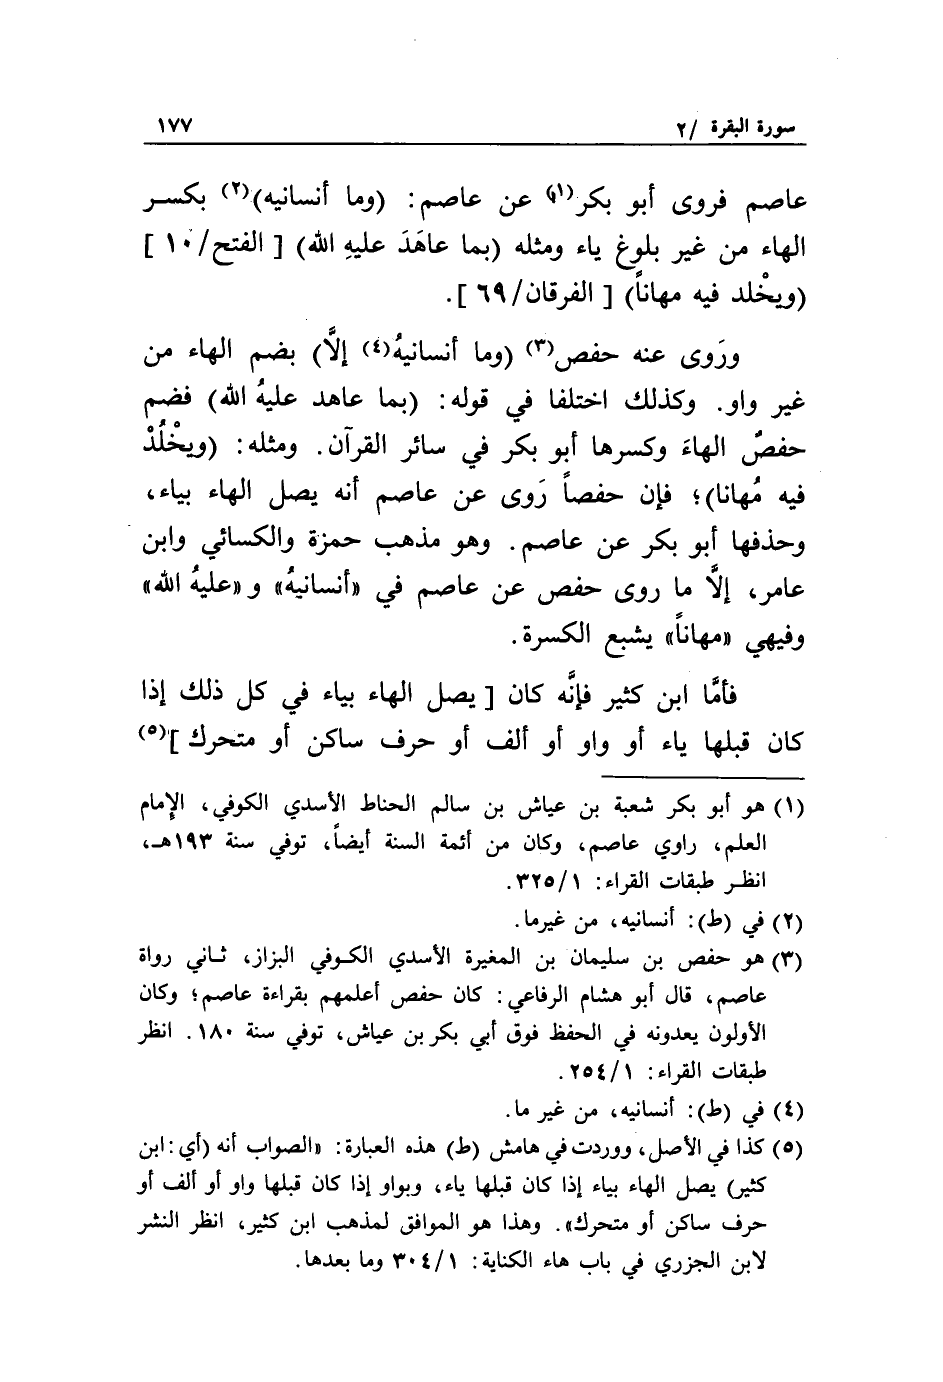 سورة البقرة /٢ ١٧٧
عاصم فروى أبو بكر(١) عن عاصم: (وما أنسانيه)(٢) بكسر
الهاء من غير بلوغ ياء ومثله (بما عاهَدَ عليهِ الله) [ الفتح/١٠ ]
(ويخْلد فيه مهاناً) [ الفرقان/٦٩ ].
ورَوى عنه حفص(٣) (وما أنسانيهُ(٤) إلَّا) بضم الهاء من
غير واو. وكذلك اختلفا في قوله: (بما عاهد عليهُ الله) فضم
حفصٌ الهاءَ وكسرها أبو بكر في سائر القرآن. ومثله: (ويخْلُدْ
فيه مُهانا)؛ فإن حفصاً رَوى عن عاصم أنه يصل الهاء بياء،
وحذفها أبو بكر عن عاصم. وهو مذهب حمزة والكسائي وابن
عامر، إلَّا ما روى حفص عن عاصم في «أنسانيهُ» و «عليهُ الله»
وفيهي «مهاناً» يشبع الكسرة.
فأمَّا ابن كثير فإنَّه كان [ يصل الهاء بياء في كل ذلك إذا
كان قبلها ياء أو واو أو ألف أو حرف ساكن أو متحرك ](٥)
(١) هو أبو بكر شعبة بن عياش بن سالم الحناط الأسدي الكوفي، الإمام
العلم، راوي عاصم، وكان من أئمة السنة أيضاً، توفي سنة ١٩٣هـ،
انظر طبقات القراء: ٣٢٥/١.
(٢) في (ط): أنسانيه، من غيرما.
(٣) هو حفص بن سليمان بن المغيرة الأسدي الكوفي البزاز، ثاني رواة
عاصم، قال أبو هشام الرفاعي: كان حفص أعلمهم بقراءة عاصم؛ وكان
الأولون يعدونه في الحفظ فوق أبي بكر بن عياش، توفي سنة ١٨٠. انظر
طبقات القراء: ٢٥٤/١.
(٤) في (ط): أنسانيه، من غير ما.
(٥) كذا في الأصل، ووردت في هامش (ط) هذه العبارة: «الصواب أنه (أي: ابن
كثير) يصل الهاء بياء إذا كان قبلها ياء، وبواو إذا كان قبلها واو أو ألف أو
حرف ساكن أو متحرك». وهذا هو الموافق لمذهب ابن كثير، انظر النشر
لابن الجزري في باب هاء الكناية: ٣٠٤/١ وما بعدها.